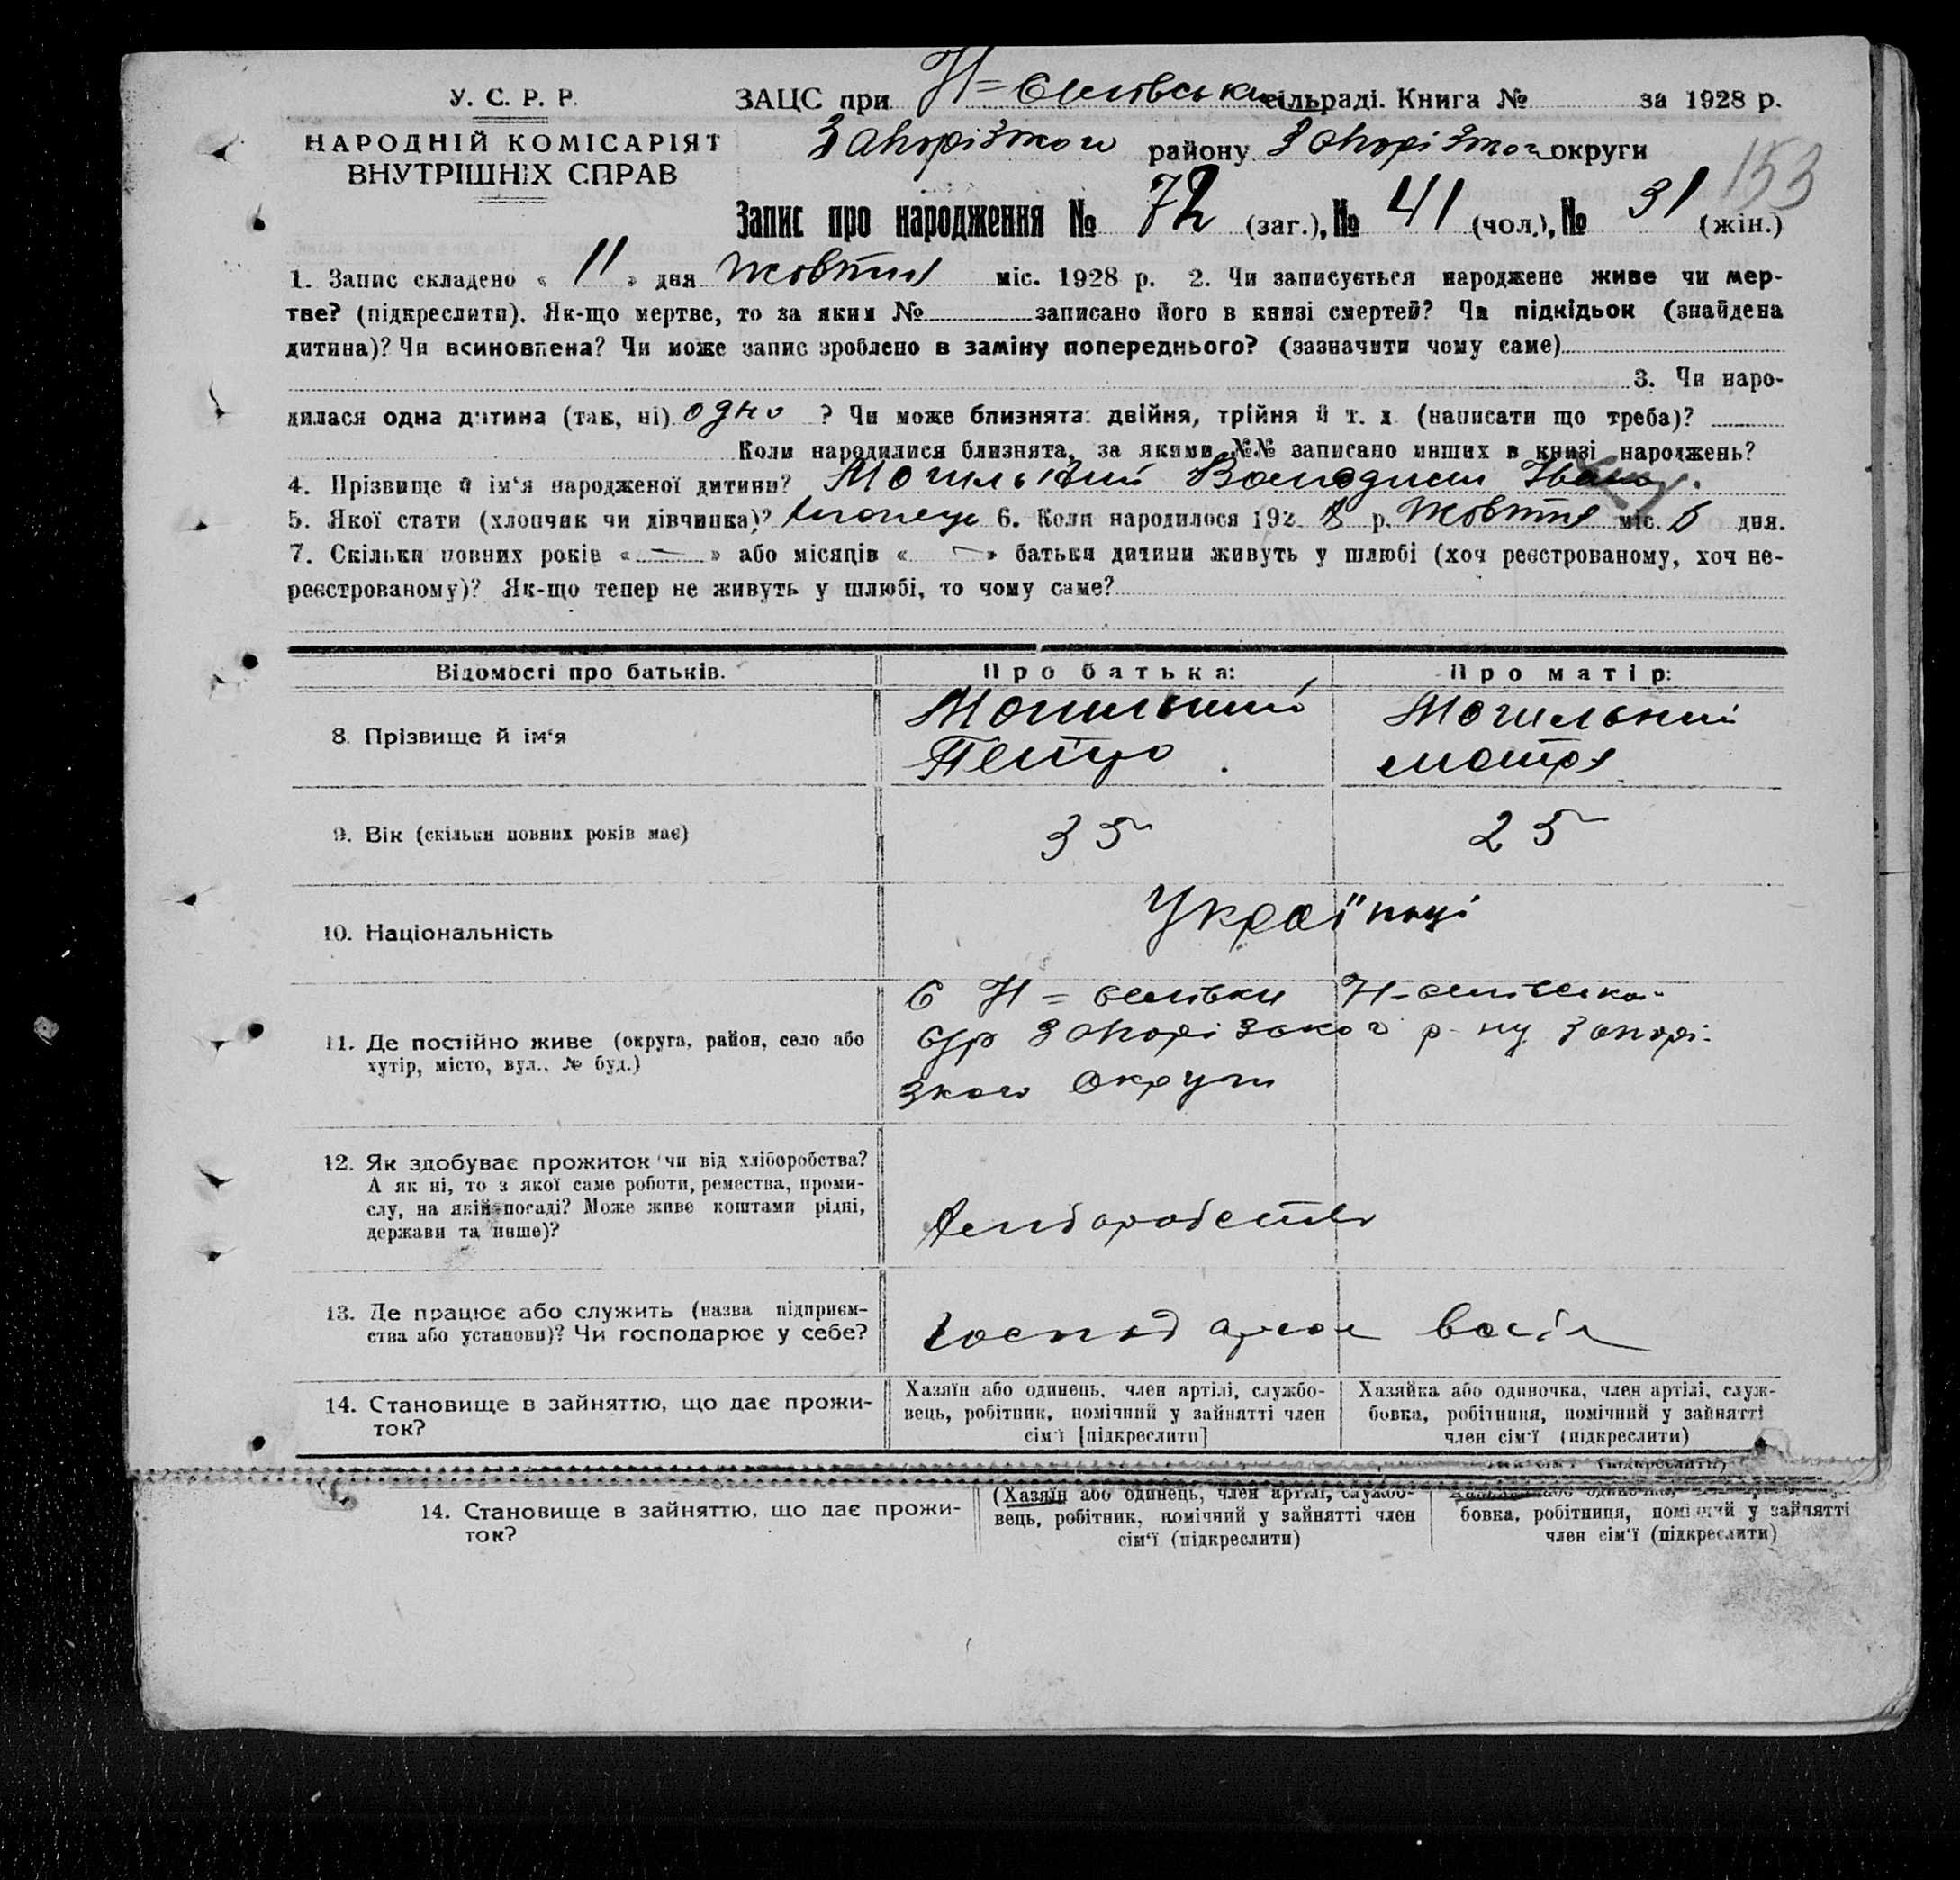 У. С. Р. Р.
НАРОДНІЙ КОМІСАРІЯТ
ВНУТРІШНІХ СПРАВ
ЗАЦС при Н=селівська сільраді. Книга № за 1928 р.
Запоріжкого району Запоріжкої округи
153
Запис про народження № 72 (заг.), № 41 (чол.), № 31 (жін.)
1. Запис складено « 11 » дня жовтня міс. 1928 р. 2. Чи записується народжене живе чи мер-
тве? (підкреслити). Як-що мертве, то за яким № записано його в книзі смертей? Чи підкідьок (знайдена
дитина)? Чи всиновлена? Чи може запис зроблено в заміну попереднього? (зазначити чому саме)
3. Чи наро-
дилася одна дитина (так, ні) одно ? Чи може близнята: двійня, трійня й т. д. (написати що треба)?
Коли народилися близнята, за якими №№ записано инших в книзі народжень?
4. Прізвище й ім'я народженої дитини? Могильний Володимир
5. Якої стати (хлопчик чи дівчинка)? хлопець 6. Коли народилося 192 8 р. жовтня міс. 6 дня.
7. Скільки повних років « — » або місяців « — » батьки дитини живуть у шлюбі (хоч реєстрованому, хоч не-
реєстрованому)? Як-що тепер не живуть у шлюбі, то чому саме?
Відомості про батьків. Про батька: Про матір:
8. Прізвище й ім'я
Могильний Могильний
Петро Мотря
9. Вік (скільки повних років має) 35 25
10. Національність Українці
11. Де постійно живе (округа, район, село або
хутір, місто, вул., № буд.)
С Н=селівки Н-селівська
с/р Запорізького р-ну Запорі-
зкого округи
12. Як здобуває прожиток чи від хліборобства?
А як ні, то з якої саме роботи, ремества, проми-
слу, на якій посаді? Може живе коштами рідні,
держави та инше)?
Хліборобство
13. Де працює або служить (назва підприєм-
ства або установи)? Чи господарює у себе?
14. Становище в зайняттю, що дає прожи-
ток?
Хазяїн або одинець, член артілі, службо-
вець, робітник, помічний у зайнятті член
сім'ї [підкреслити]
Хазяйка або одиночка, член артілі, служ-
бовка, робітниця, помічний у зайнятті
член сім'ї (підкреслити)
14. Становище в зайняттю, що дає прожи-
ток?
(Хазяїн або одинець, член артілі, службо-
вець, робітник, помічний у зайнятті член
сім'ї (підкреслити)
бовка, робітниця, помічний у зайнятті
член сім'ї (підкреслити)